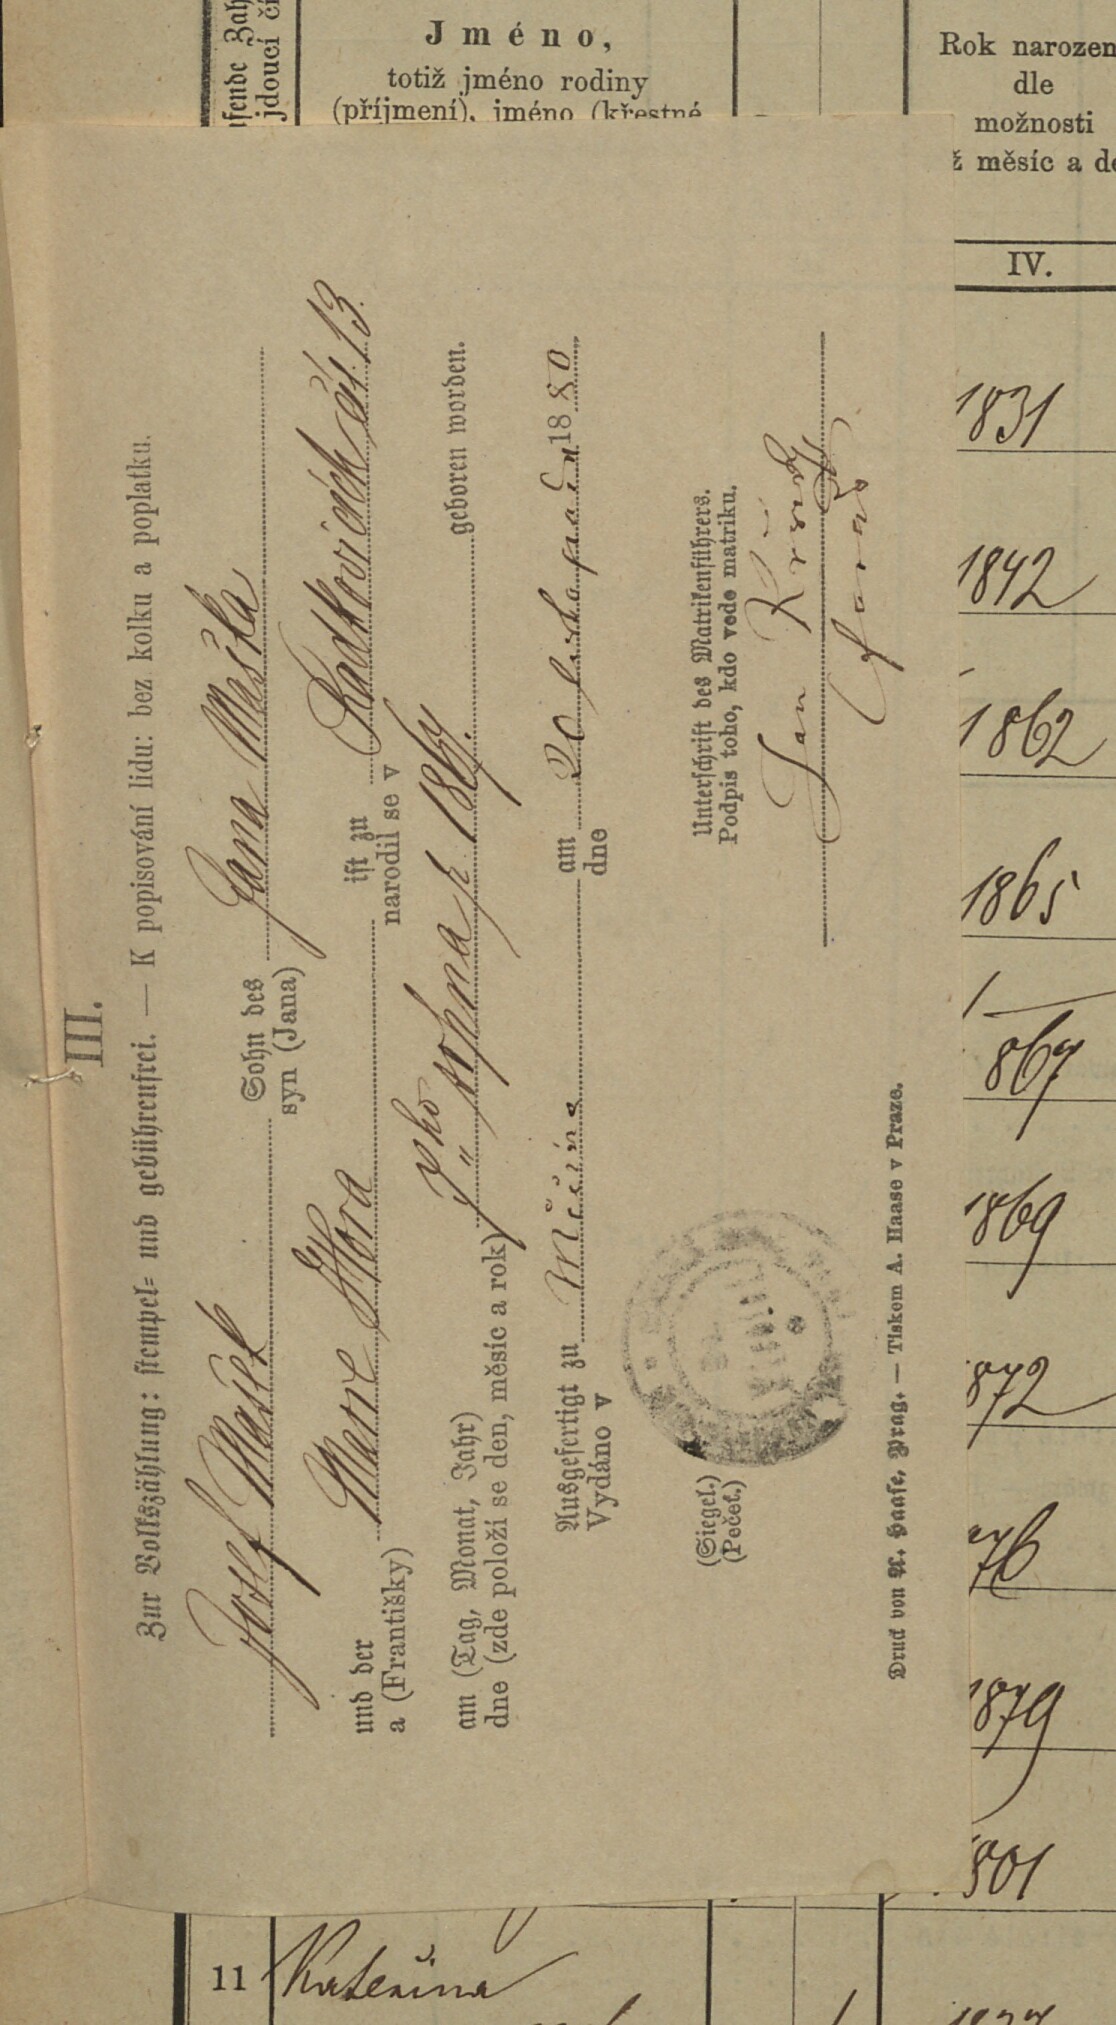 Jméno,
totiž jméno rodiny
(příjmení), jméno (křestné
Rok narozen
dle
možnosti
ž měsíc a de
IV.
III.
Zur Volkszählung: stempel- und gebührenfrei. — K popisování lidu: bez kolku a poplatku.
Josef Mašek
Sohn des
syn (Jana)
Jana Maška
und der
a (Františky)
Marie
ist zu
narodil se v
čís. 13.
am (Tag, Monat, Jahr)
dne (zde položí se den, měsíc a rok)
srpna r. 1867.
geboren worden.
Ausgefertigt zu
Vydáno v
Měčína
am
dne
20 listopadu 1880
(Siegel.)
(Pečeť.)
Unterschrift des Matrikenführers.
Podpis toho, kdo vede matriku.
Jan
farář
Druck von A. Haase, Prag. — Tiskem A. Haase v Praze.
1831
1842
1862
1865
1867
1869
872
76
1879
801
11 Kateřina